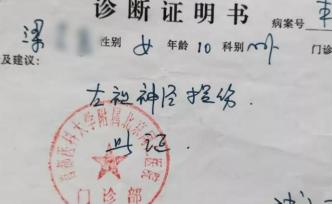 诊断证明书
病案号
梁 性别 女 年龄 10 科别 外 门诊
及建议：
左视神经挫伤.
此证
首都医科大学附属北京 医院
门诊部